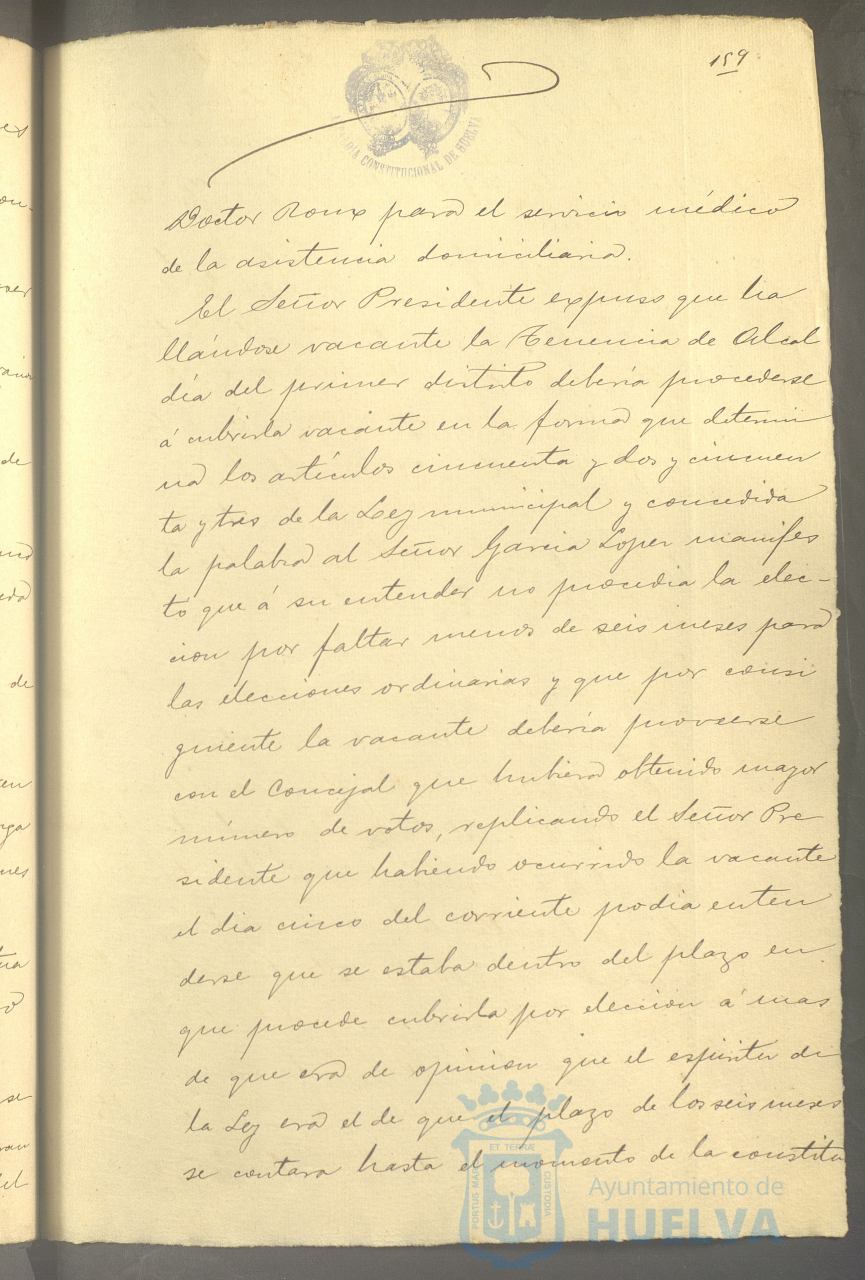 159
ALCALDIA CONSTITUCIONAL DE HUELVA
Doctor Roux para el servicio médico
de la asistencia domiciliaria.
El Señor Presidente expuso que ha
llándose vacante la Tenencia de Alcal
día del primer distrito debería procederse
á cubrirla vacante en la forma que determi
na los artículos cincuenta y dos y cincuen
ta y tres de la Ley municipal y concedida
la palabra al Señor Garcia Lopez manifes
tó que á su entender no procedia la elec-
cion por faltar menos de seis meses para
las elecciones ordinarias y que por consi
guiente la vacante debería proveerse
con el Concejal que hubiera obtenido mayor
número de votos, replicando el Señor Pre
sidente que habiendo ocurrido la vacante
el dia cinco del corriente podia enten
derse que se estaba dentro del plazo en
que procede cubrirla por eleccion á mas
de que era de opinion que el espiritu de
la Ley era el de que el plazo de los seis meses
se contara hasta el momento de la constitu
PORTUS MARIS
ET TERRÆ
CUSTODIA
Ayuntamiento de
HUELVA
de
de
se